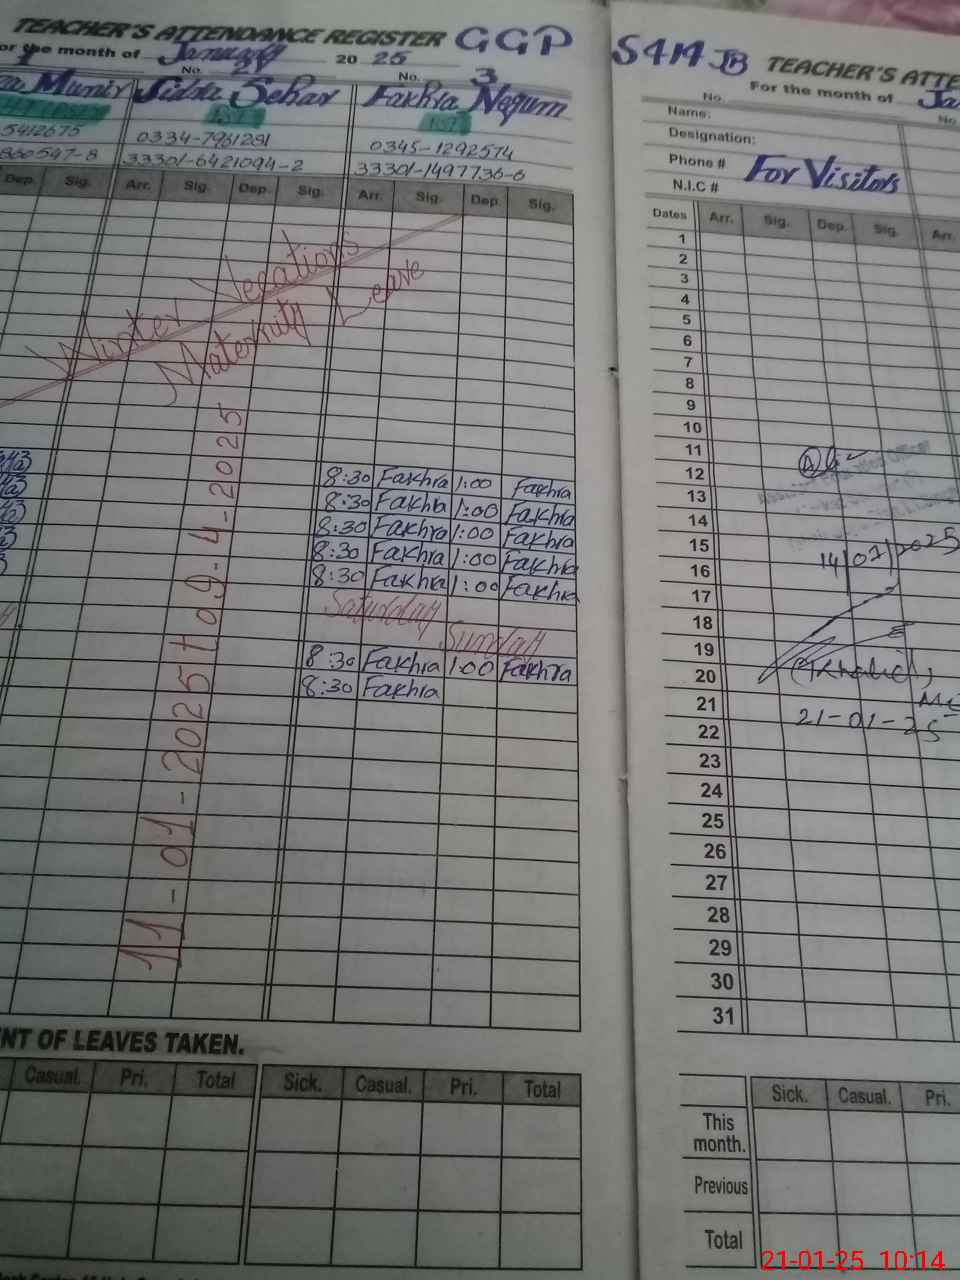 TEACHER'S ATTENDANCE REGISTER GGP
or the month of January 2025
No. 2 No. 3
Munir Sidra Sehar Fakhra Negum
5412675 0334-7961291 0345-1292574
33301-6421094-2 33301-1497736-6
Dep. Sig. Arr. Sig. Dep. Sig. Arr. Sig. Dep. Sig.
Winter Vecations
Maternity Leave
11-01-2025 to 9-4-2025
8:30 Fakhra 1:00 Fakhra
8:30 Fakhra 1:00 Fakhra
8:30 Fakhra 1:00 Fakhra
8:30 Fakhra 1:00 Fakhra
8:30 Fakhra 1:00 Fakhra
Saturday
Sunday
8:30 Fakhra 1:00 Fakhra
8:30 Fakhra
NT OF LEAVES TAKEN.
Casual. Pri. Total Sick. Casual. Pri. Total
JB TEACHER'S ATTE
For the month of Ja
No. No.
Name:
Designation:
Phone # For Visitors
N.I.C #
Dates Arr. Sig. Dep. Sig. Arr.
1
2
3
4
5
6
7
8
9
10
11
12
13
14
15
16 14/01/2025
17
18
19
20
21
22 21-01-25
23
24
25
26
27
28
29
30
31
Sick. Casual. Pri.
This month.
Previous
Total
21-01-25 10:14